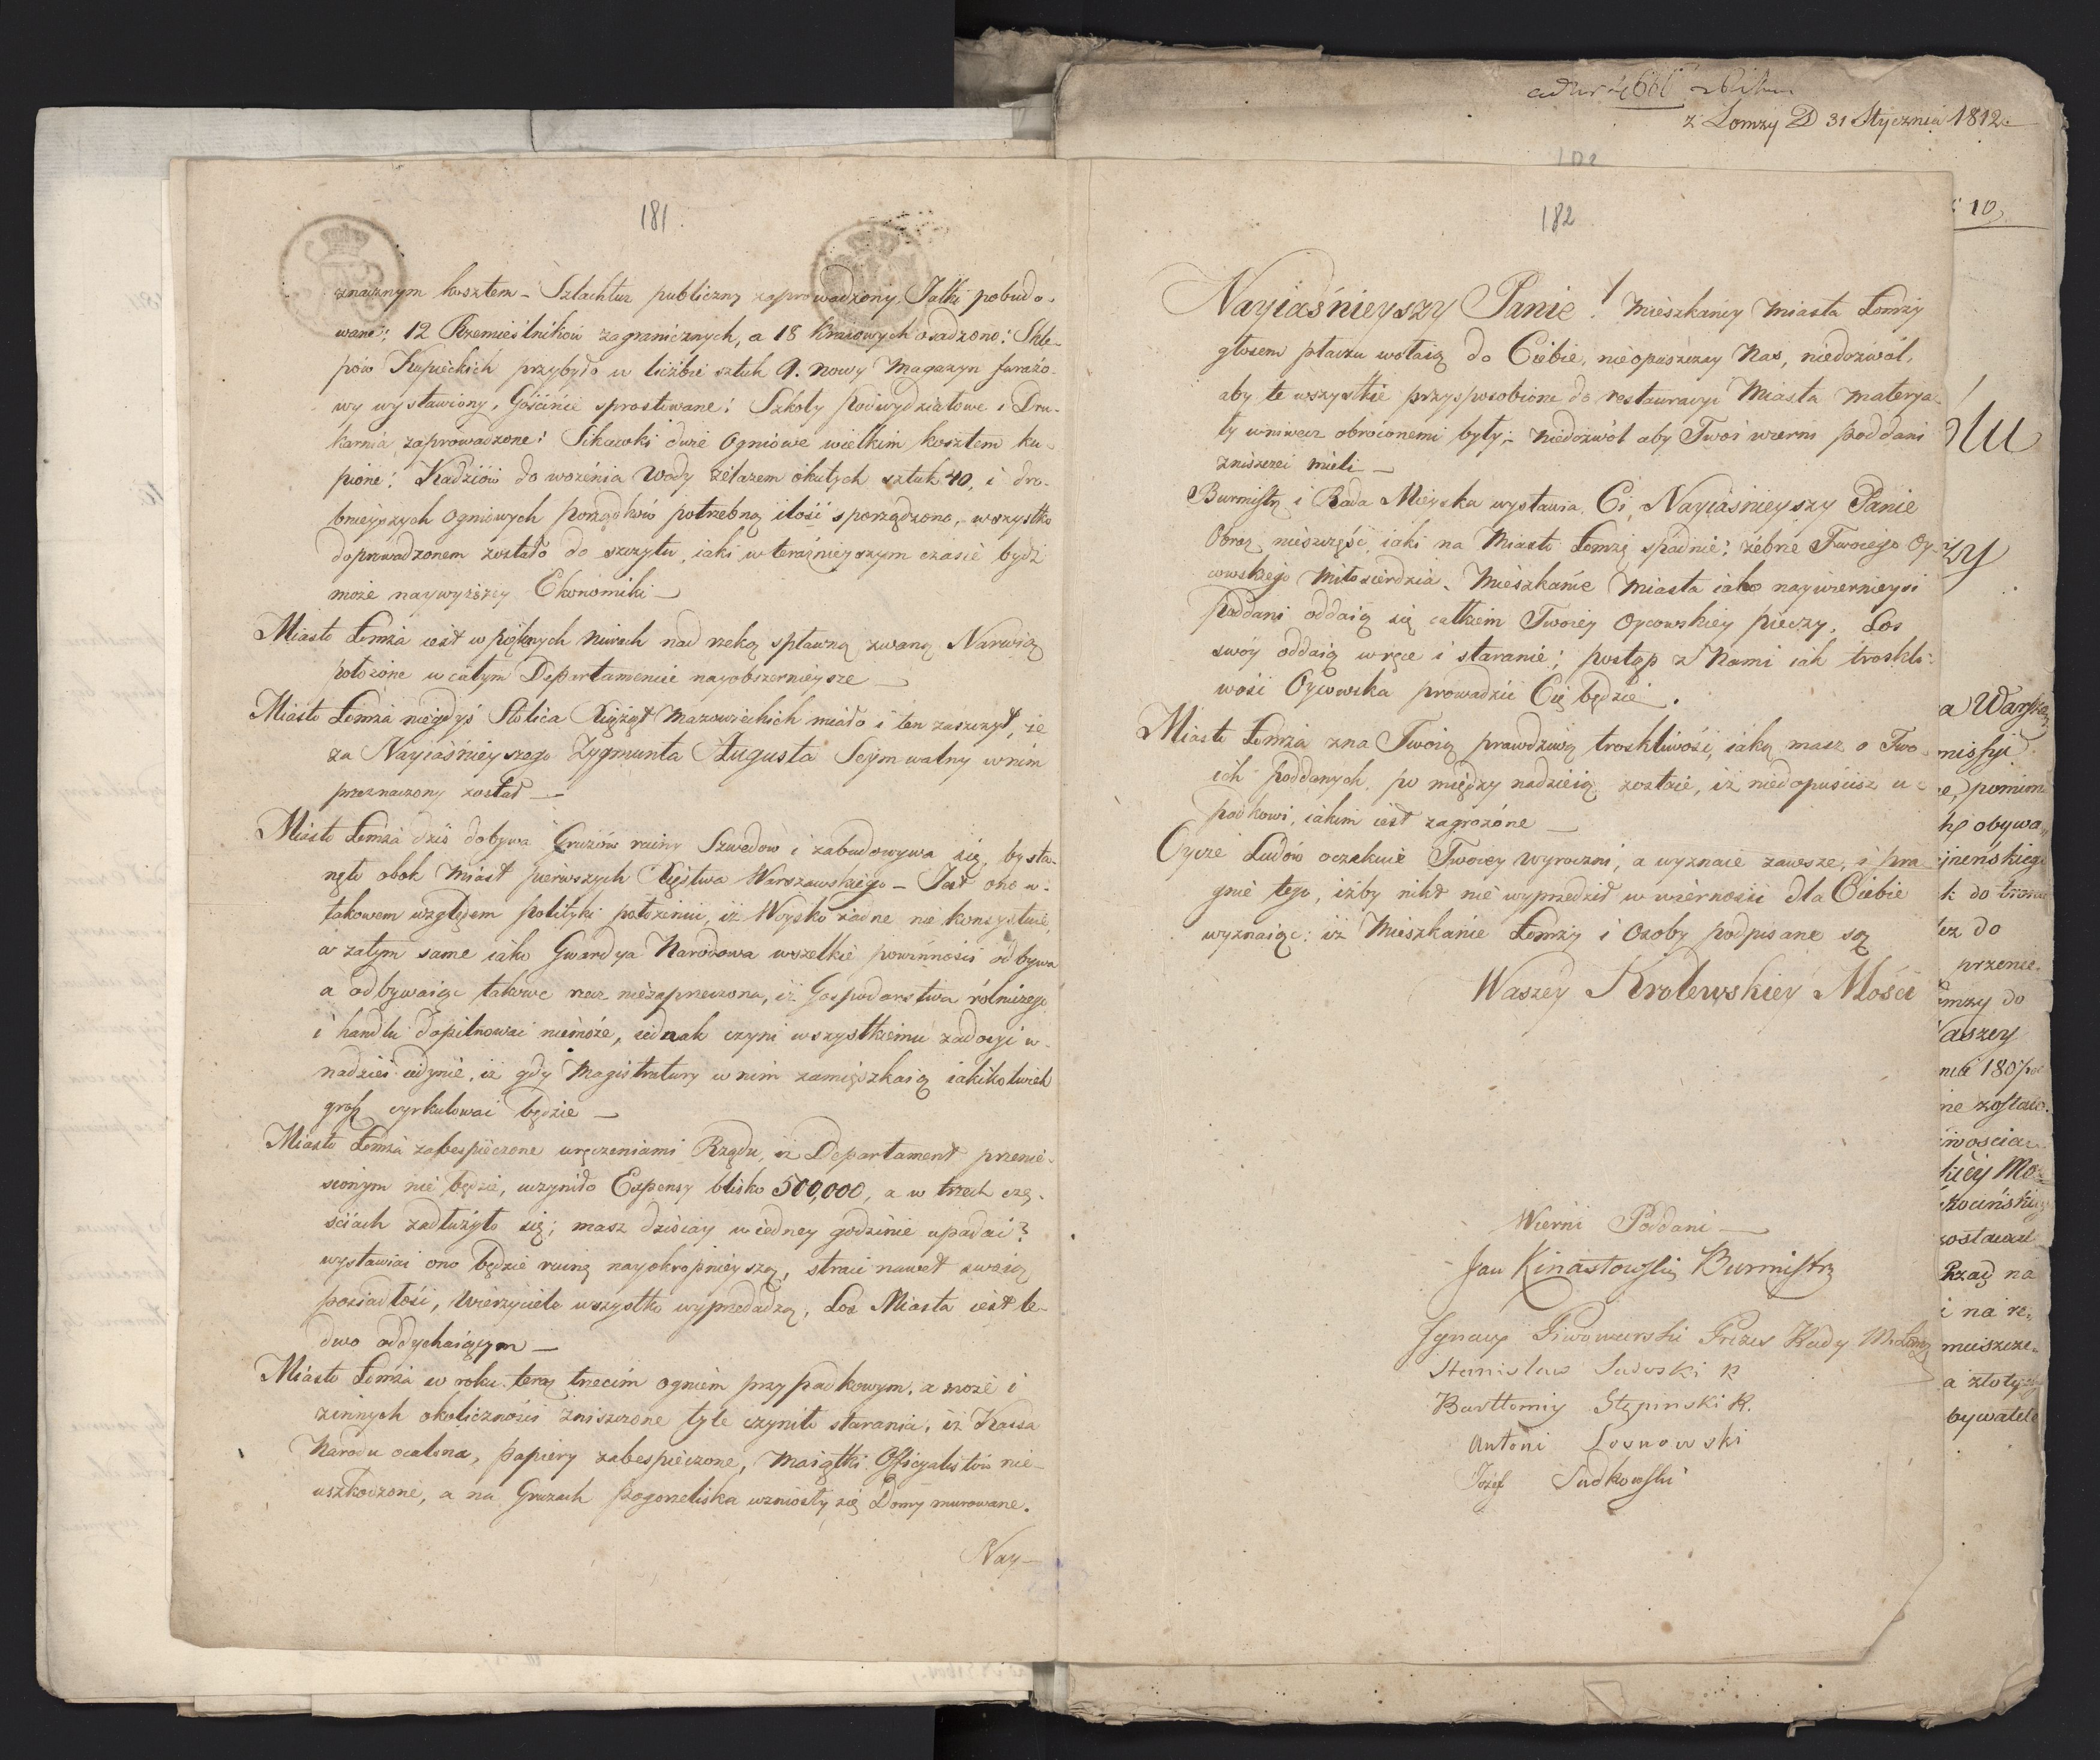 181.
znacznym kosztem – Szlachtuz publiczny zaprowadzony. Jatki pobudo-
wane; 12 Rzemieślników zagranicznych, a 18 kraiowych osadzono: Skle-
pów Kupieckich przybyło w liczbie sztuk 9. nowy Magazyn furażo-
wy wystawiony, Gościńce sprostowane: Szkoły Podwydziałowe i Dru-
karnia zaprowadzone: Sikawki duże Ogniowe wielkim kosztem ku-
pione: Kadziów do wożenia Wody żelazem okutych sztuk 40, i dro-
bnieyszych Ogniowych porządków potrzebną ilość sporządzono, wszystko
doprowadzonem zostało do szczytu, iaki w teraźnieyszym czasie bydź
może naywyższey Ekonomiki –
Miasto Łomża iest w pięknych niwach nad rzeką spławną zwaną Narwią
położone w całym Departamencie nayobszernieysze –
Miasto Łomża niegdyś Stolica Xiążąt Mazowieckich miało i ten zaszczyt, że
za Nayiaśnieyszego Zygmunta Augusta Seym walny w nim
przeznaczony został –
Miasto Łomża dziś dobywa Gruzów ruiny Szwedów i zabudowywa się, by sta-
nęło obok Miast pierwszych Xięstwa Warszawskiego – Jest ono w
takowem względem polityki położeniu, iż Woysko żadne nie konsystuie,
a zatym same iako Gwardya Narodowa wszelkie powinności odbywa
a odbywaiąc takowe rzecz niezaprzeczona, iż Gospodarstwa rolniczego
i handlu dopilnować niemoże, iednak czyni wszystkiemu zadosyć w
nadziei iedynie, iż gdy Magistratury w nim zamięszkaią iakikolwiek
grosz cyrkulować będzie –
Miasto Łomża zabespieczone uręczeniami Rządu, iż Departament przenie-
sionym nie będzie, uczyniło Expensy blisko 500,000, a w trzech czę-
ściach zadłużyło się; masz dzisiay w iedney godzinie upadać?
wystawiać ono będzie ruinę nayokropnieyszą, straci nawet swoią
posiadłość, Wierzyciele wszystko wyprzedadzą, Los Miasta iest le-
dwo oddychaiącym –
Miasto Łomża w roku teraz trzecim ogniem przypadkowym, a może i
zinnych okoliczności zniszczone tyle czyniło starania, iż Kassa
Narodu ocalona, papiery zabespieczone, Maiątki Officyalistów nie-
uszkodzone, a na Gruzach pogorzeliska wzniosły się Domy murowane.
Nay–
z Łomży D 31 Stycznia 1812
182
Nayiaśnieyszy Panie! Mieszkańcy Miasta Łomży
głosem płaczu wołaią do Ciebie, nieopuszczay Nas, niedozwól,
aby te wszystkie przysposobione do restauracyi Miasta materya-
ły wniwecz obróconemi były; – niedozwól aby Twoi wierni poddani
zniszczeć mieli –
Burmistrz i Rada Mieyska wystawia Ci, Nayiaśnieyszy Panie
Obraz nieszczęść, iaki na Miasto Łomżę spadnie; żebrze Twoiego Oy-
cowskiego Miłosierdzia. Mieszkańce Miasta iako naywiernieysi
poddani oddaią się całkiem Twoiey Oycowskiey pieczy. Los
swóy oddaią w ręce i staranie; postąp z Nami iak troskli-
wość Oycowska prowadzić Cię będzie.
Miasto Łomża zna Twoią prawdziwą troskliwość, iaką masz o Two-
ich poddanych, po między nadzieią zostaie, iż niedopuścisz u-
padkowi, iakim iest zagrożone –
Oycze Ludów oczekuie Twoiey wyroczni, a wyznaie zawsze, i pra-
gnie tego, iżby nikt nie wyprzedził w wierności dla Ciebie
wyznaiąc: iż Mieszkańce Łomży i Osoby podpisane są
Waszey Krolewskiey Mości
Wierni Poddani –
Jan Kinastowski Burmistrz
Ignacy Piwowarski Prezes Rady
Stanisław Sadoski R
Bartłomiy Stępinski R.
Antoni Sosnowski
Józef Sudkowski